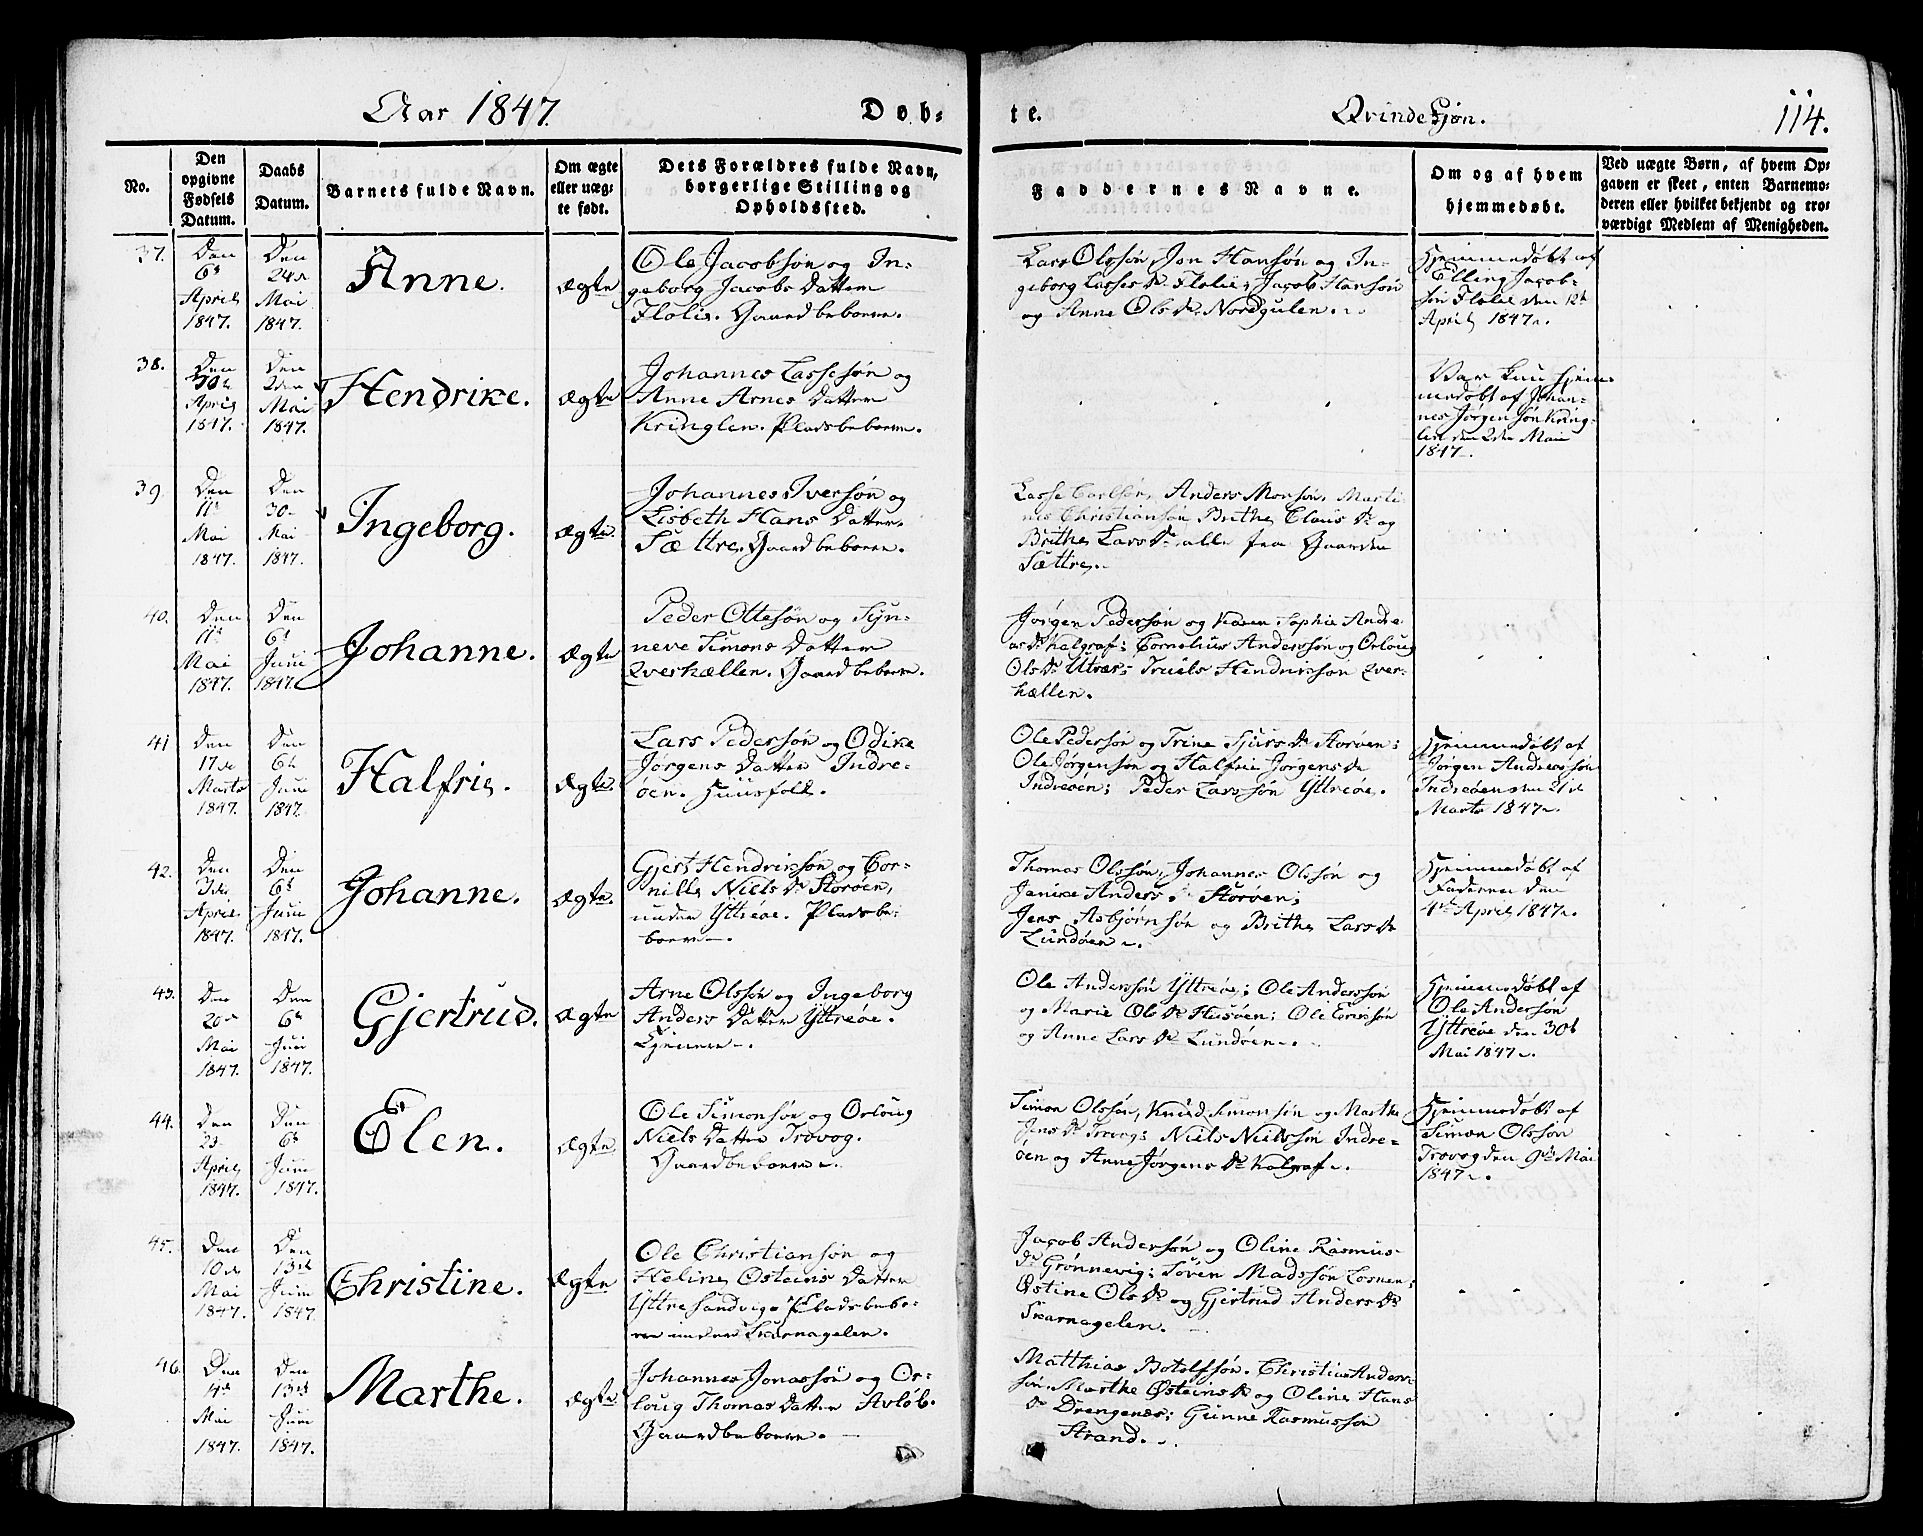 Aar 1847.
Døb-
te.
Qvindekjøn.
114.
No.
Den opgivne Fødsels Datum.
Daabs Datum.
Barnets fulde Navn.
Om ægte eller uæg-te født.
Dets Forældres fulde Navn, borgerlige Stilling og Opholdssted.
Faddernes Navne.
Om og af hvem hjemmedøbt.
Ved uægte Børn, af hvem Op-
gaven er skeet, enten Barnemo-
deren eller hvilket bekjendt og tro-
værdigt Medlem af Menigheden.
37.
Den
6
April
1847.
Den
24
Mai
1847.
Anne.
Ægte
Ole Jacobsøn og In-
geborg Jacobs Datter
Flolie. Gaardbeboere.
Lars Olssøn, Jon Hansøn og In-
geborg Lasses Dr. Flolie; Jacob Hansøn
og Anne Ols Dr. Nordgulen.
Hjemmedøbt af
Elling Jacob-
søn Flolie den 12
April 1847.
38.
Den
30
April
1847.
Den
2den
Mai
1847.
Hendrike.
Ægte
Johannes Lassesøn og
Anne Arnes Datter
Kringlen. Pladsbeboere.
Var kun hjem-
medøbt af Johan-
nes Jørgensøn Kring-
len den 2den Mai
1847.
39.
Den
11
Mai
1847.
Den
30
Mai
1847.
Ingeborg.
Ægte
Johannes Iversøn og
Lisbeth Hans Datter
Sættre. Gaardbeboere.
Lasse Carlsøn, Anders Monsøn, Marti
nes Christiansøn Brithe Claus Dr og
Brithe Lars Dr alle fra Gaarden
Sættre.
40.
Den
11
Mai
1847.
Den
6
Juni
1847.
Johanne.
Ægte
Peder Ottesøn og Syn-
neve Simons Datter
Qverhællen. Gaardbeboere.
Jørgen Pedersøn og Karen Sophie Andre
as Dr Kalgraf; Cornelius Anderssøn og Orloug
Ols Dr Utvær; Truels Hendrikssøn Qver-
hællen.
41
Den
17
Marts
1847.
Den
6
Juni
1847.
Halfrie.
Ægte.
Lars Pedersøn og Odike
Jørgens Datter Indre-
øen. Huusfolk.
Ole Pedersøn og Trine Sjurs Dr Storøen;
Ole Jørgensøn og Halfrie Jørgens Dr
Indreøen; Peder Larssøn Yttrøe.
Hjemmedøbt af
Jørgen Anderssøn
Indreøen den 21
Marts 1847.
42.
Den
3
April
1847.
Den
6
Juni
1847.
Johanne.
Ægte.
Gjert Hendriksøn og Cor-
nille Niels Dr Storøen,
under Yttrøe. Pladsbe-
boere.
Thomas Olssøn, Johannes Olssøn og
Janike Anders Dr Storøen;
Jens Asbjørnsøn og Brithe Lars Dr
Lundøen.
Hjemmedøbt af
Faderen den
4 April 1847.
43.
Den
20
Mai
1847.
Den
6
Juni
1847.
Gjertrud.
Ægte
Arne Olssøn og Ingeborg
Anders Datter Yttrøe.
Egnere.
Ole Anderssøn Yttrøe; Ole Anderssøn
og Marie Ols Dr Husøen; Ole Erikssøn
og Anne Lars Dr Lundøen.
Hjemmedøbt af
Ole Anderssøn
Yttrøe den 30
Mai 1847.
44.
Den
April
1847.
Den
6
Juni
1847.
Elen.
Ægte.
Ole Simonsøn og Orloug
Niels Datter Trovog.
Gaardbeboere.
Simon Olssøn, Knud Simonsøn og Marthe
Jens Dr Trovog; Niels Nielssøn Indre-
øen og Anne Jørgens Dr Kalgraf.
Hjemmedøbt af
Simon Olssøn
Trovog den 9 Mai
1847.
45.
Den
10
Mai
1847.
Den
13
Juni
1847
Christine.
Ægte.
Ole Christiansøn og
Heline Østeins Datter
Yttre Sandvig. Pladsbebo-
ere under Skarnagelen.
Jacob Andersøn og Oline Rasmus-
Dr Grønnevig; Søren Madssøn Losnen;
Østine Ols Dr og Gjertrud Anders Dr
Skarnagelen.
46.
Den
4
Mai
1847.
Den
13
Juni
1847.
Marthe.
Ægte.
Johannes Jonassøn og Or-
loug Thomas Datter Avløb.
Gaardbeboere.
Matthias Botolfsøn, Christian Anders-
søn, Marthe Østeins Dr og Oline Hans
Dr Drengenæs; Gunne Rasmussøn
Strand.